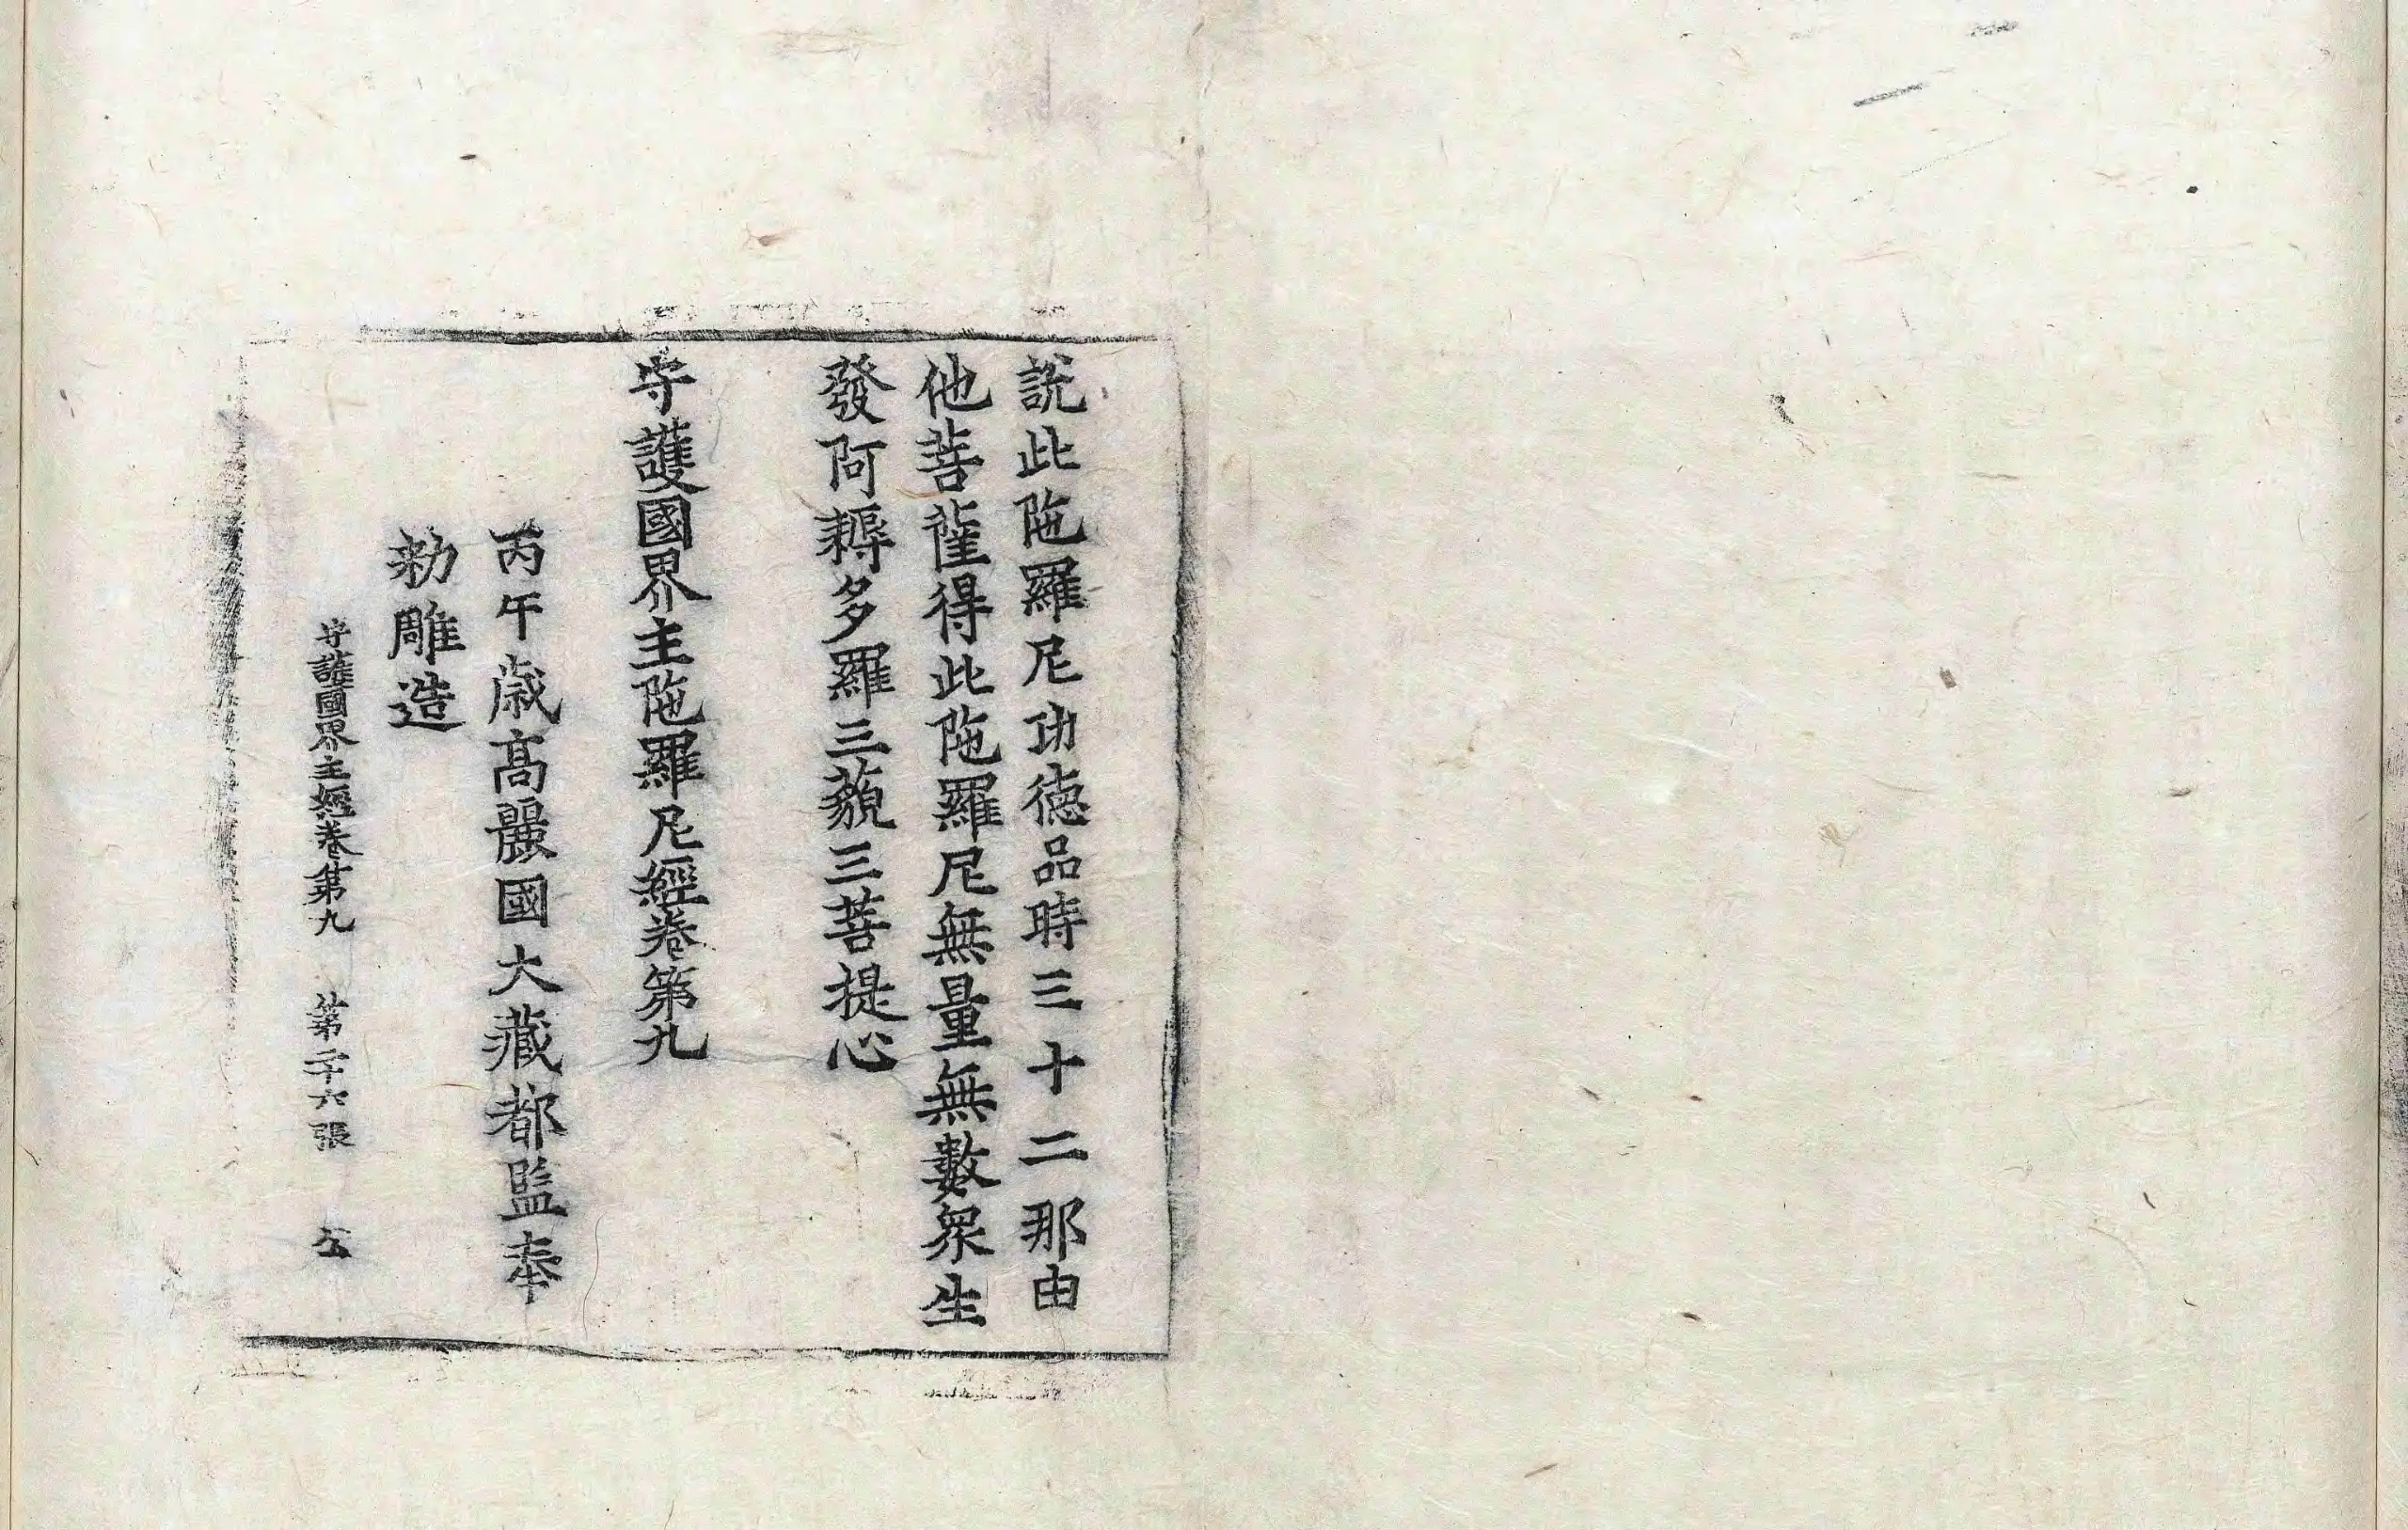 說此陁羅尼功德品時三十二那由
他菩薩得此陁羅尼無量無數衆生
發阿耨多羅三藐三菩提心
守護國界主陁羅尼經卷第九
丙午歲高麗國大藏都監奉
勑雕造
守護國界主經卷第九 第二十六張